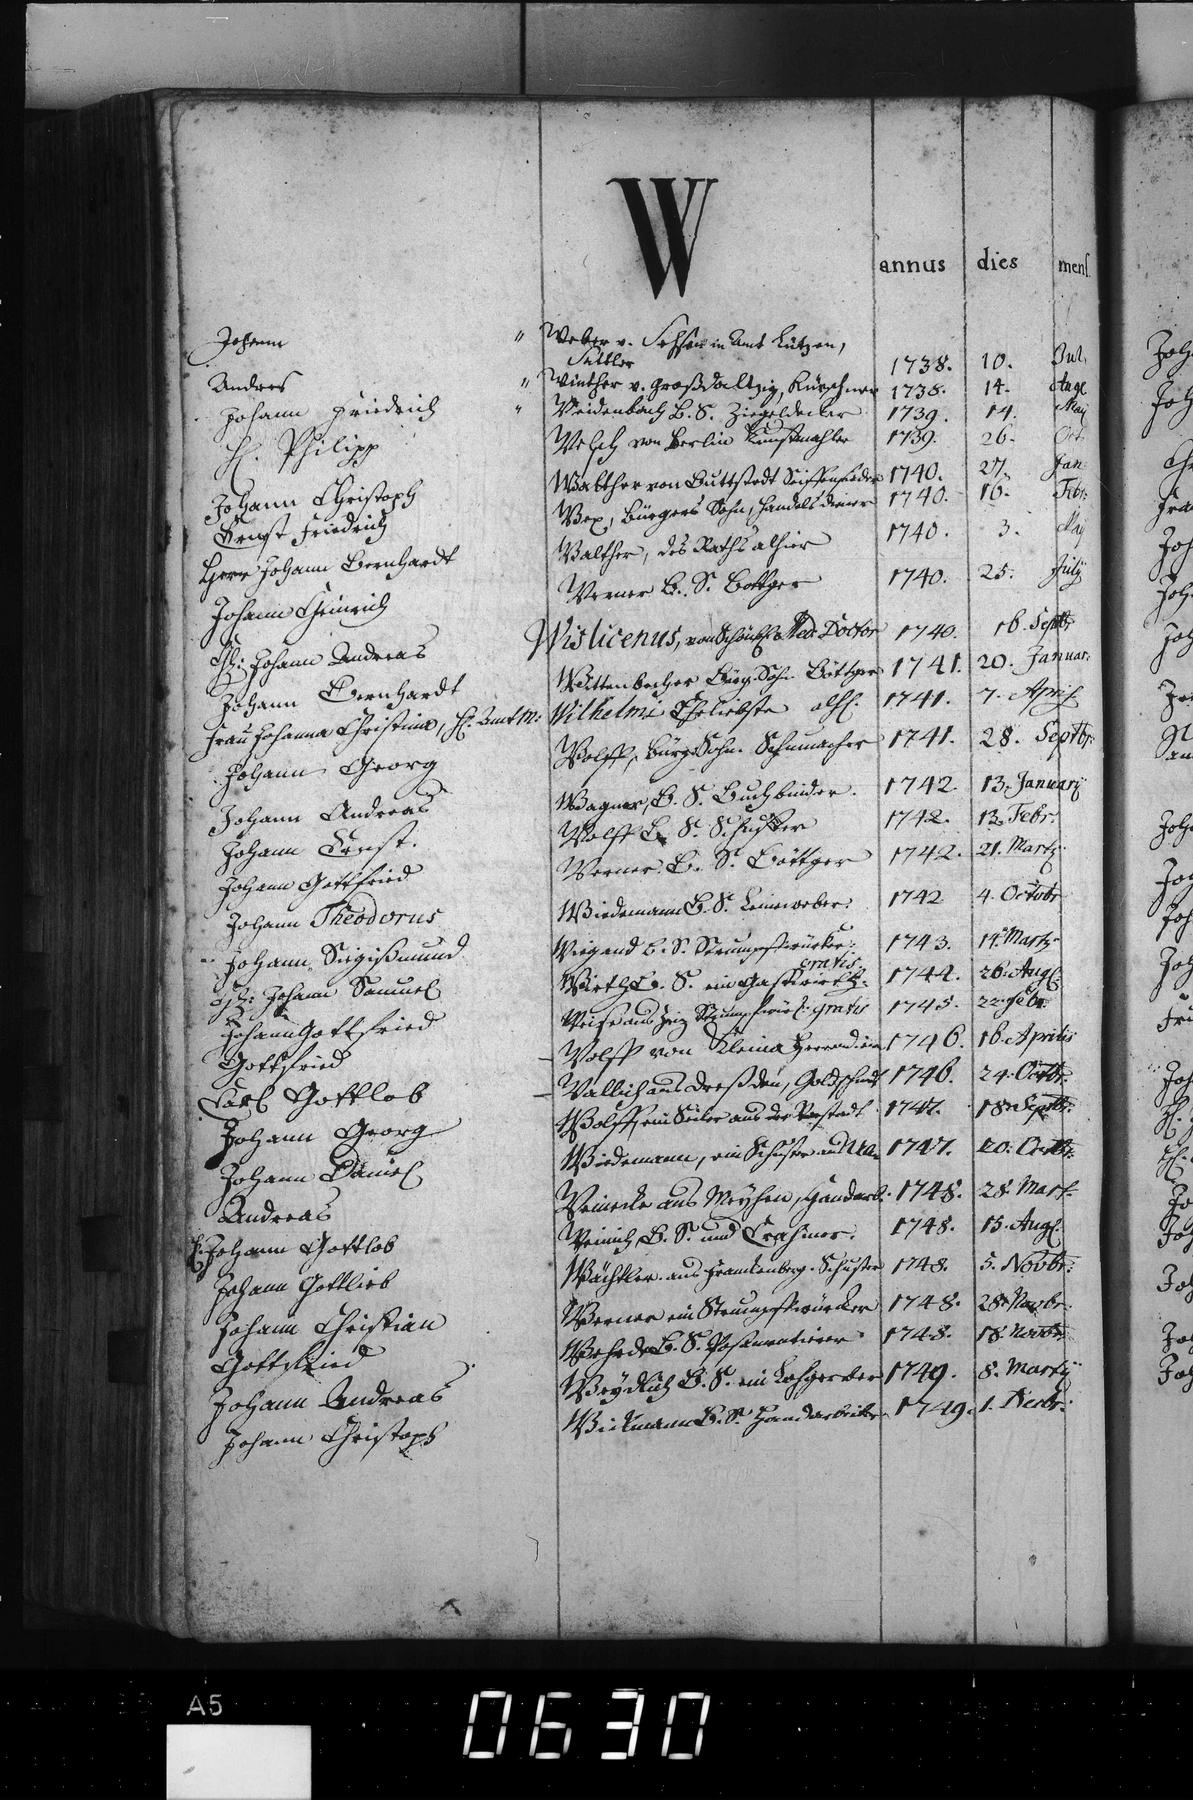 W
annus dies mens.
Johann " Weber v. in Amt Lützen,
Sattler 1738. 10. Jul.
Andres " Winther v. Großdaltzig, Kürschner 1738. 14. Aug.
Johann Friedrich " Weidenbach B. S. Ziegeldecker 1739. 14. May
H. Philipp Welsch von Berlin Kunstmahler 1739. 26. Oct.
Johann Christoph Walther von Buttstedt Seiffensieder 1740. 27. Jan
Ernst Friedrich Wex, Bürgers Sohn, Handelsdiener 1740. 16. Febr.
Herr Johann Bernhardt Walther, des Raths alhier 1740. 3. May
Johann Heinrich Werner B. S. Böttger 1740. 25. July
H: Johann Andreas Wislicenus, von Med: Doctor 1740. 16. Septbr
Johann Bernhardt Wittenbecher Bürg. Sohn Böttger 1741. 20. Januar:
Frau Johanna Christina, H. Amt M: Wilhelmi Eheliebste alh. 1741. 7. April
Johann Georg Wolff, Bürg. Sohn. Schumacher 1741. 28. Septbr:
Johann Andreas Wagner, B. S. Buchbinder. 1742. 13. January
Johann Ernst. Wolff B. S. Schuster 1742. 13. Febr.
Johann Gottfried Werner B. S. Böttger 1742. 21. Martz
Johann Theodorus Wiedemann B. S. Leineweber 1742 4. Octobr
Johann Siegißmund Wiegand B. S. Strumpfwürcker. 1743. 14. Martz
gratis
H: Johann Samuel Wirth B. S. ein Gastwirth. 1744. 26. Aug.
Johann Gottfried Weise aus Zeiz Strumpfwür. gratis 1745. 22. Febr.
Gottfried Wolff von Kleina 1746. 16. Aprilis
Carl Gottlob Wallich aus Dreßden, Goldschmidt 1746. 24. Octbr.
Johann Georg Wolff, ein Seiler aus der Vorstadt 1747. 18. Septbr:
Johann Daniel Wiedemann, ein Schuster aus 1747. 20. Octbr:
Andreas Weinecke aus Meyhen, Handarb. 1748. 28. Mart.
H. Johann Gottlob Weinich B. S. und Crahmer. 1748. 15. Aug.
Johann Gottlieb Wächtler aus Franckenberg. Schuster 1748. 5. Novbr:
Johann Christian Werner ein Strumpfwürcker 1748. 28. Novbr:
Gottfried B. S. Posamentierer 1748. 18. Novbr:
Johann Andreas Weydlich B. S. ein Lohgerber 1749. 8. Martij
Johann Christoph Wickmann B. S. Handarbeiter. 1749. 1. Decbr:
A5
0630